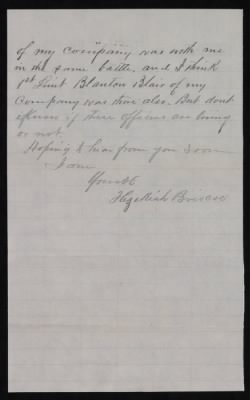 of my company was with me
in the same battle, and I think
1st Lieut Blanton Blair of my
Company was there also. But dont
if these officers are living
or not.
Hoping to hear from you soon
I am
Yours &c
Hezekiah Briscoe